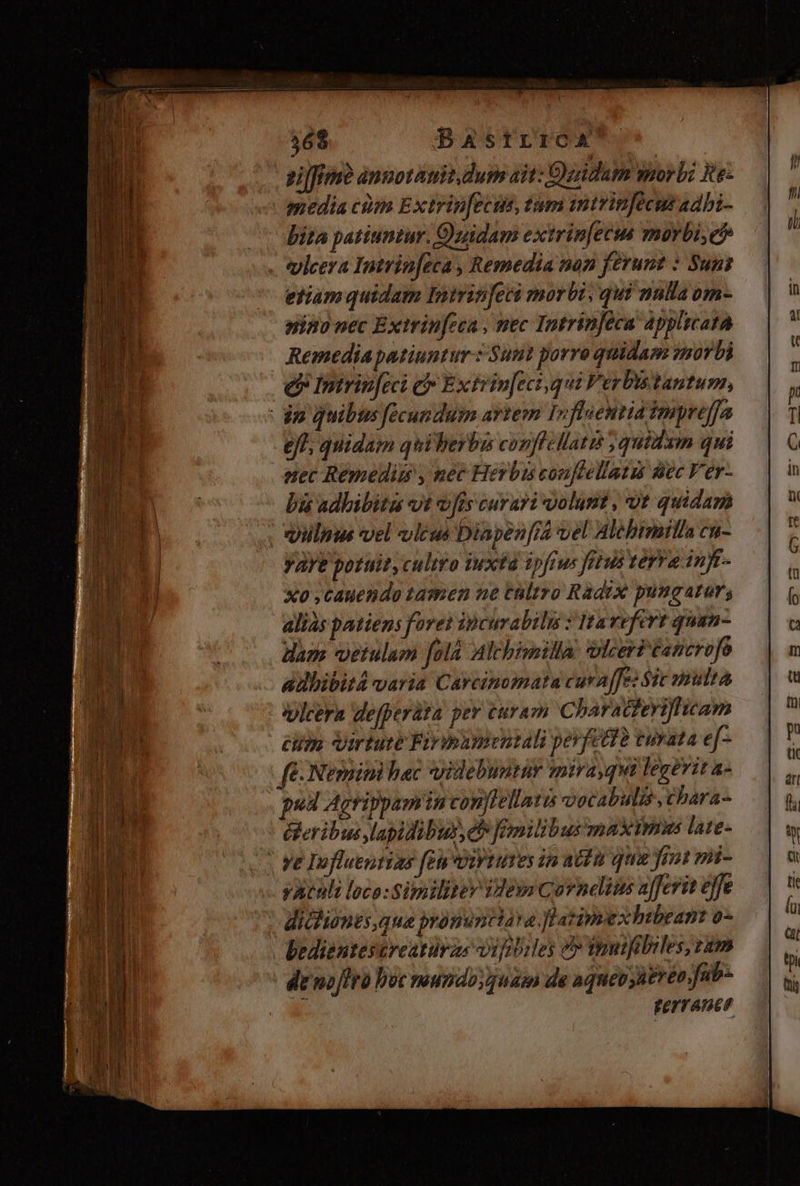 368 BASILICA
tissimè annotauit, dum ait: Quidam morbi Re-
media cùm Extrinsecus, tum intrinsecus adhi-
bita patiuntur. Quidam extrinsecus morbi, &
vlcera Intrinseca, Remedia non ferunt: Sunt
etiam quidam Intrinseci morbi, qui nulla om-
nino nec Extrinseca, nec Intrinseca applicata
Remedia patiuntur: Sunt porro quidam morbi
& Intrinseci & Extrinseci, qui Verbis tantum,
in quibus secundum artem Influentia impressa
est, quidam qui herbis constellatis, quidam qui
nec Remediis, nec Herbis constellatis nec Ver-
bis adhibitis vt vsis curari volunt, vt quidam
vulnus vel vlcus Diapensiâ vel Alchimilla cu-
rare potuit, cultro iuxta ipsius situs terræ infi-
xo, cauendo tamen ne cultro Radix pungatur,
aliàs patiens foret incurabilis: Ita refert quan-
dam vetulam solâ Alchimilla vlceri cancroso
adhibitâ varia Carcinomata curasse: Sic multa
vlcera desperata per curam Characteristicam
cum virtute Firmamentali perfectè curata es-
se. Nemini hæc videbuntur mira, qui legerit a-
pud Agrippam in constellatis vocabulis, chara-
cteribus, lapidibus, & similibus maximas late-
re Influentias seu virtutes in actu quæ sint mi-
raculi loco: Similiter idem Cornelius asserit esse
dictiones, quæ pronunciatæ statim exhibeant o-
bedientes creaturas visibiles & inuisibiles, tam
de nostro hoc mundo, quàm de aqueo, aëreo, sub-
terraneo